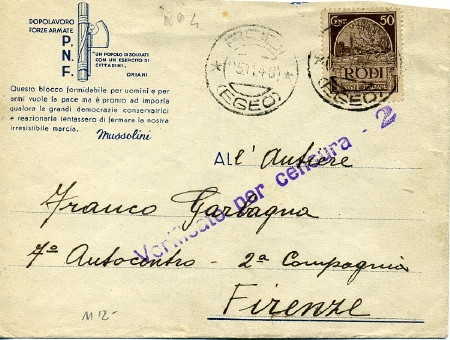 DOPOLAVORO
FORZE ARMATE
P.
N.
F.
"UN POPOLO DI SOLDATI
CON UN ESERCITO DI
CITTADINI„
ORIANI
Questo blocco formidabile per uomini e per
armi vuole la pace ma è pronto ad imporla
qualora le grandi democrazie conservatrici
e reazionarie tentassero di fermare la nostra
irresistibile marcia. Mussolini
RODI
(EGEO)
CENT 50
RODI
POSTE ITALIANE
(EGEO)
All'Autiere
Verificato per censura - 2
Franco Garbagna
7° Autocentro - 2ª Compagnia
Firenze
M 12-